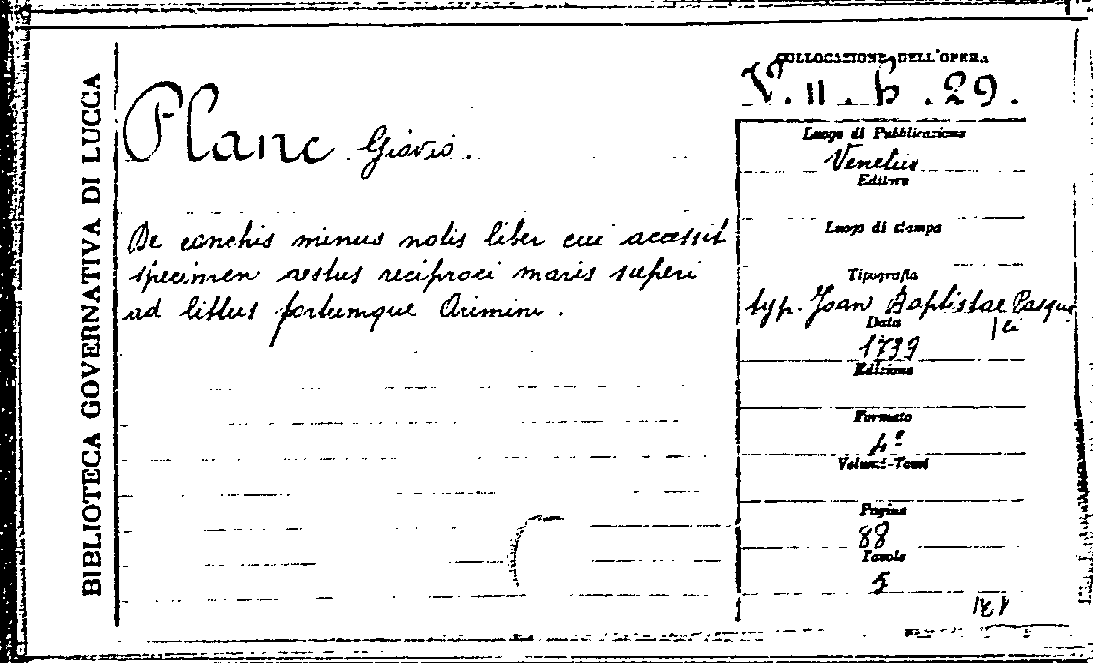 BIBLIOTECA GOVERNATIVA DI LUCCA
COLLOCAZIONE DELL'OPERA
V. II. b. 29.
Planc Giovio.
De conchis minus notis liber cui accessit
specimen aestus reciproci maris superi
ad littus portumque Arimini.
Luogo di Pubblicazione
Venetus
Editore
Luogo di stampa
Tipografia
typ. Joan Baptistae Pasqua
li
Data
1739
Edizione
Formato
4°
Volumi-Tomi
Pagine
88
Tavole
5